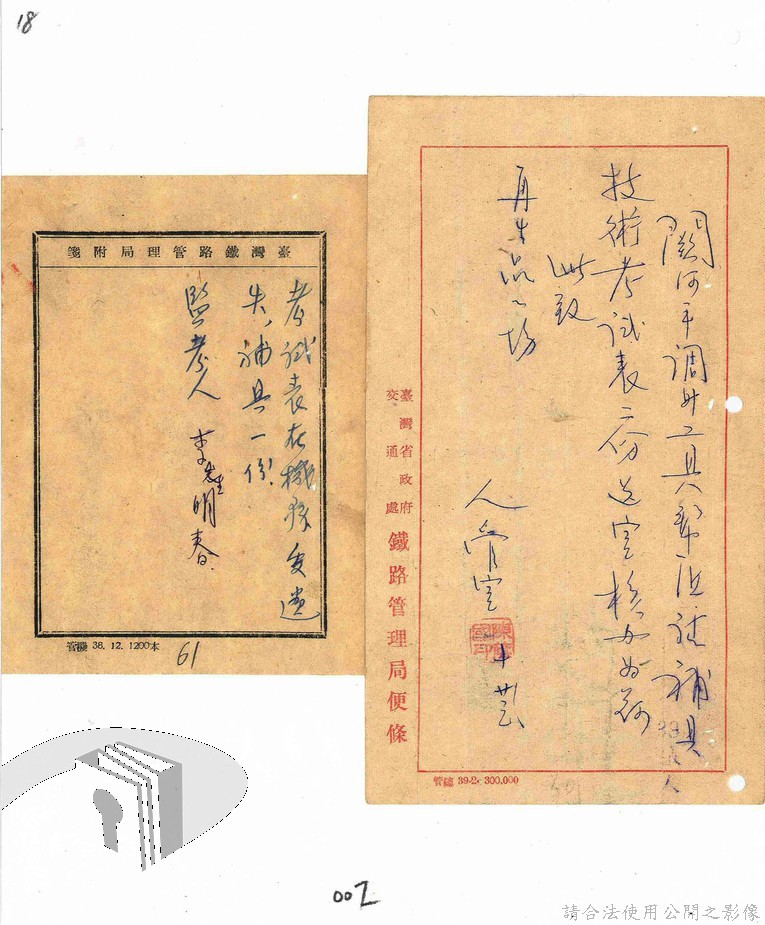 18
關何平調升工具幫匠請補具
技術考試表二份送室核办為荷
此致
再生品工場
人管室
臺灣省政府
交通處
鐵路管理局便條
管總 39-2- 300,000
臺灣鐵路管理局附箋
考試表在機務處遺
失,補具一份.
監考人 李先生明春
管機 38. 12. 1200本
61
002
請合法使用公開之影像